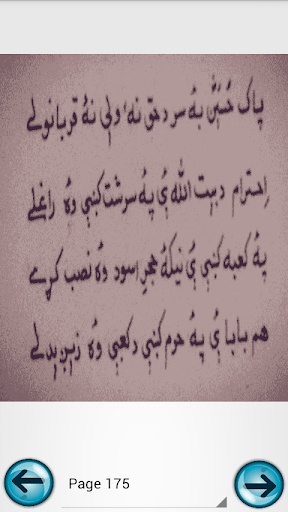 پاک حُسَیْنؓ بهٔ سر دحق نه، ولې نهٔ قربانولے
اِحترام دبیت الله ئ پهٔ سرشت کښې وهٔ راغلے
پهٔ کعبه کښې ئ نیکهٔ حجرِ اسود وهٔ نصب کړے
هم بابا ئ پهٔ حرم کښې دکعبې وهٔ زېږېدلے
Page 175